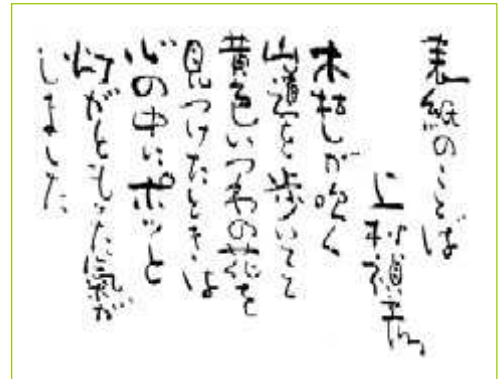 表紙のことば
上村
木枯しが吹く
山道を歩いてて
黄色いつわの花を
見つけたときは
心の中にポッと
灯がともった氣が
しました